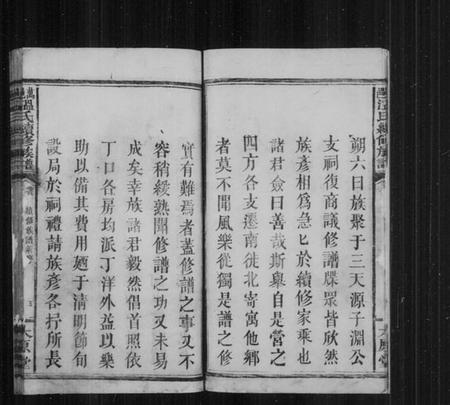 朔六日族聚于三天源子淵公
支祠復商議修譜牒眾皆欣然
族彥相爲急匕於續修家乘也
諸君僉曰善哉斯舉自是營之
四方各支遷南徙北寄寓他鄉
者莫不聞風樂從獨是譜之修
實有難焉者蓋修譜之事又不
容稍緩熟聞修譜之功又未易
成矣幸族諸君毅然倡首照依
丁口各房均派丁洋外益以樂
助以備其費用廼于清明節旬
設局於祠禮請族彥各抒所長
溫氏續修族譜
太原堂